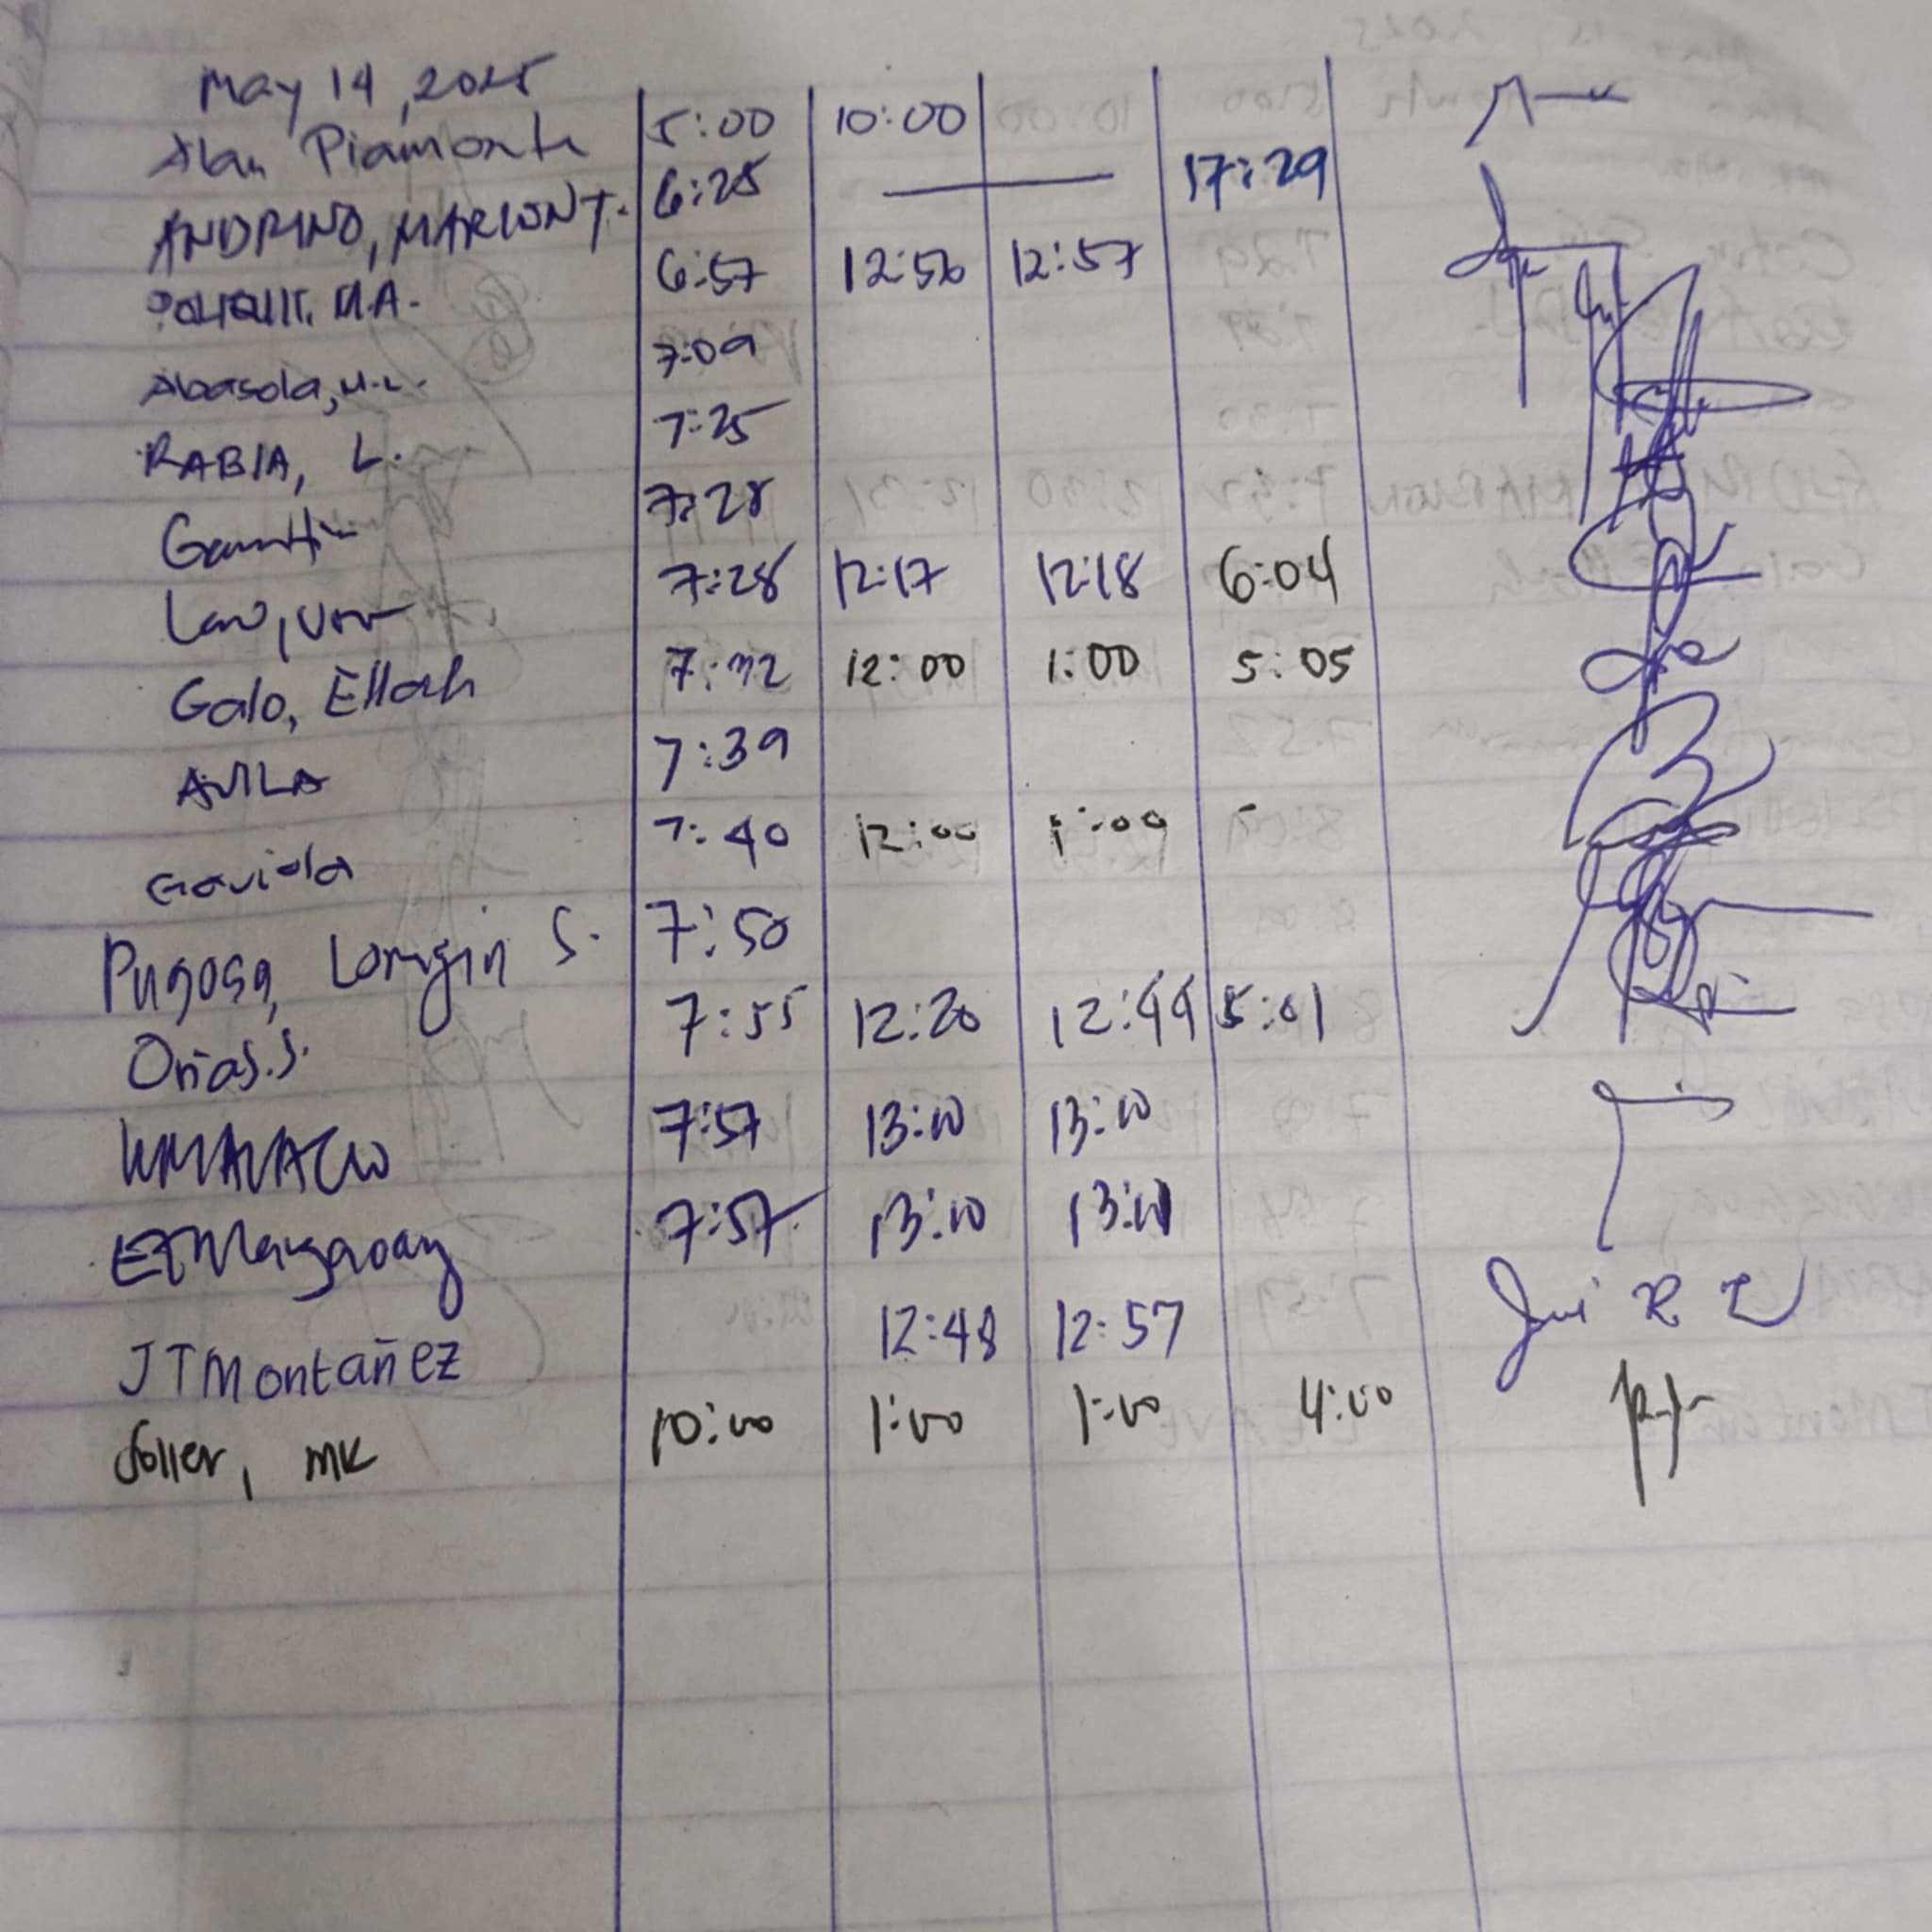 May 14, 2025
Alan Piamonte 5:00 10:00
ANDRINO, MARLON T. 6:25 17:29
M.A. 6:57 12:56 12:57
Abasola, 7:09
RABIA, L. 7:25
7:28
Law, 7:28 12:17 12:18 6:04
Galo, Ellah 7:32 12:00 1:00 5:05
AVILA 7:39
Gaviola 7:40 12:00 1:00 5
Pugosa, Lorngin S. 7:50
Oñas.S. 7:55 12:20 12:44 5:01
7:57 13:10 13:10
7:57 13:10 13:11
JTMontañez 12:48 12:57
Soller, MK 10:00 1:00 1:00 4:00